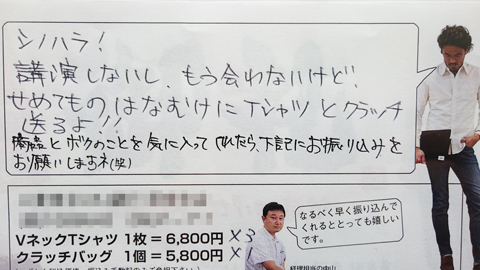 シノハラ!
講演しないし、もう会わないけど、
せめてものはなむけにTシャツとクラッチ
送るよ!!
商品とボクのことを気に入ってくれたら、下記にお振り込みを
お願いしますネ(笑)
なるべく早く振り込んで
くれるととっても嬉しい
です。
VネックTシャツ 1枚=6,800円 ×3
クラッチバッグ 1個=5,800円 ×1
経理担当の中山